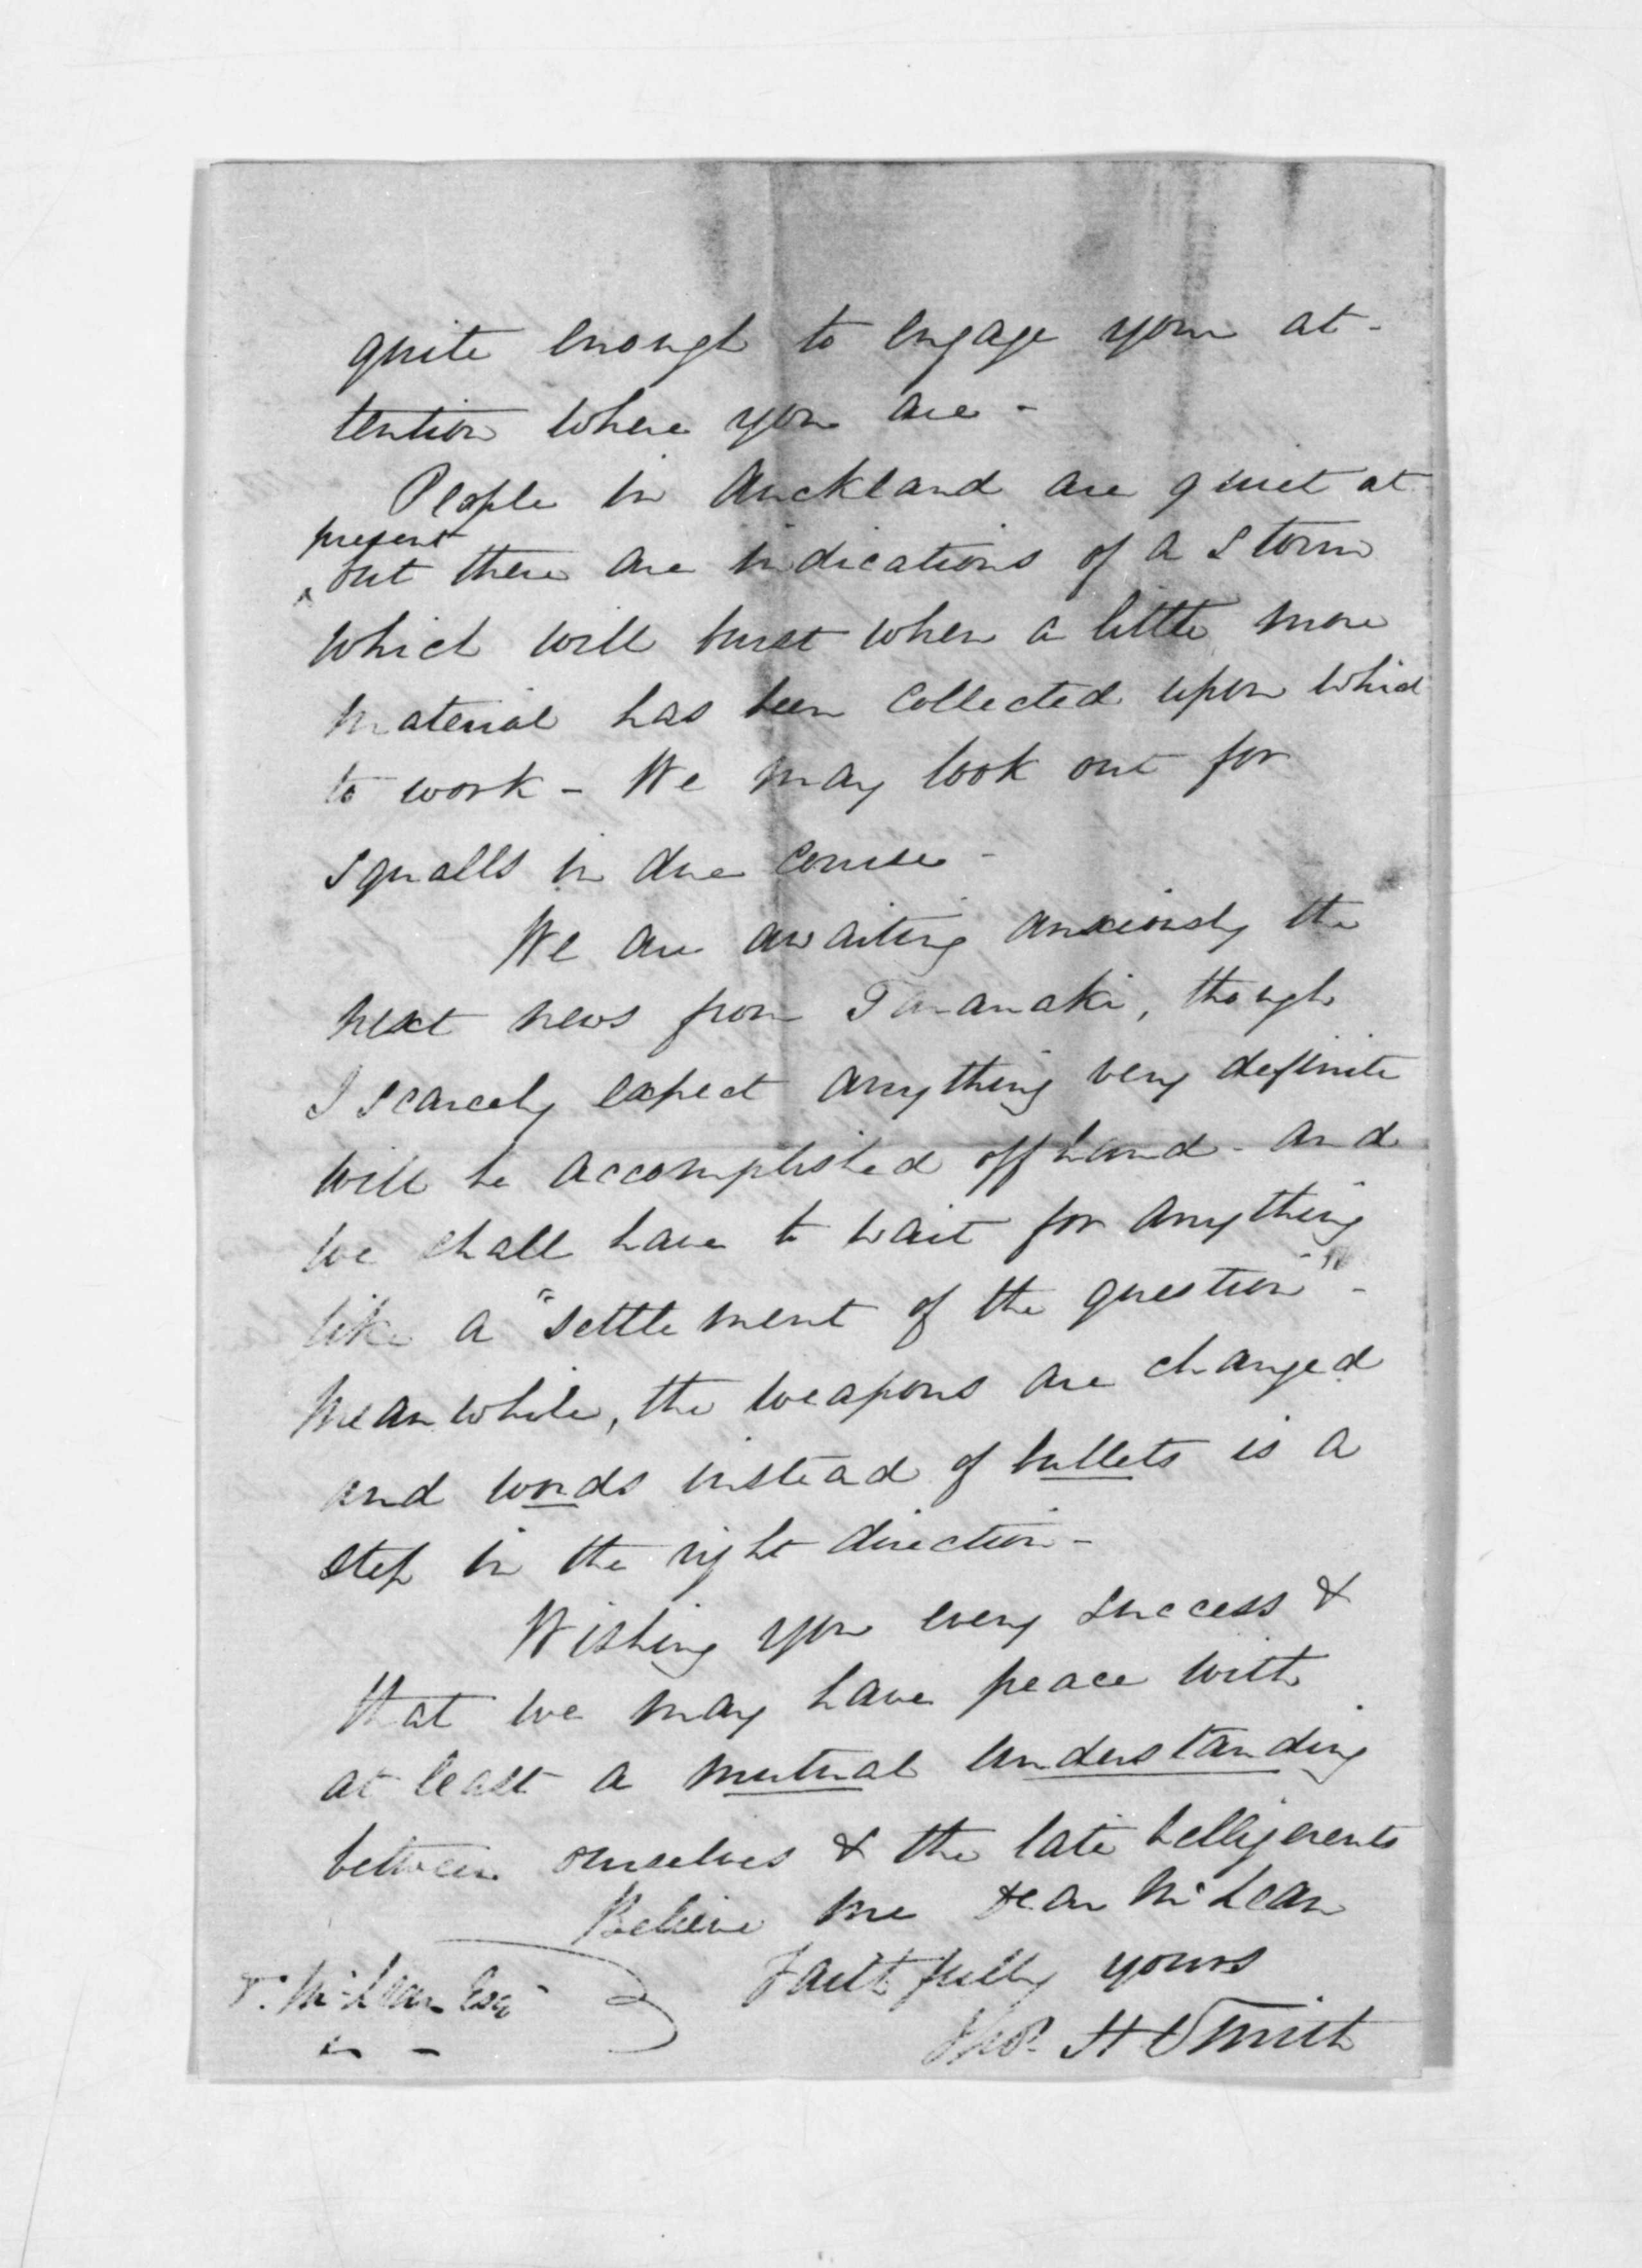 quite enough to engage your at-
tention where you are -
People in Auckland are quiet at
present
but there are indications of a storm
which will burst when a little more
material has been collected upon which
to work - We may look out for
squalls in due course -
We are awaiting anxiously the
next news from Taranaki, though
I scarcely expect anything very definite
will be accomplished off hand - and
we shall have to wait for anything
like a "settlement of the question" -
Meanwhile, the weapons are changed
and words instead of bullets is a
step in the right direction -
Wishing you every success &
that we may have peace with
at least a mutual understanding
between ourselves & the late belligerents
Believe me Dear McLean
Faithfully yours
Thos. H Smith
D. McLean Esqr